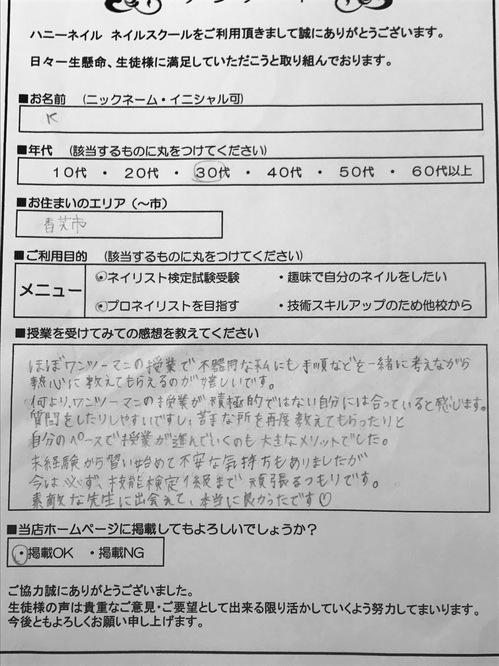 ハニーネイル ネイルスクールをご利用頂きまして誠にありがとうございます。
日々一生懸命、生徒様に満足していただこうと取り組んでおります。
■お名前 (ニックネーム・イニシャル可)
K
■年代 (該当するものに丸をつけてください)
10代 ・ 20代 ・ 30代 ・ 40代 ・ 50代 ・ 60代以上
■お住まいのエリア (〜市)
香芝市
■ご利用目的 (該当するものに丸をつけてください)
メニュー
・ネイリスト検定試験受験 ・趣味で自分のネイルをしたい
・プロネイリストを目指す ・技術スキルアップのため他校から
■授業を受けてみての感想を教えてください
ほぼワンツーマンの授業で不器用な私にも手順などを一緒に考えながら
熱心に教えてもらえるのが嬉しいです。
何よりワンツーマンの授業が積極的ではない自分には合っていると感じます。
質問をしたりしやすいですし、苦手な所を再度教えてもらったりと
自分のペースで授業が進んでいくのも大きなメリットでした。
未経験から習い始めて不安な気持ちもありましたが
今は必ず、技能検定1級まで頑張るつもりです。
素敵な先生に出会えて、本当に良かったです♡
■当店ホームページに掲載してもよろしいでしょうか?
・掲載OK ・掲載NG
ご協力誠にありがとうございました。
生徒様の声は貴重なご意見・ご要望として出来る限り活かしていくよう努力してまいります。
今後ともよろしくお願い申し上げます。